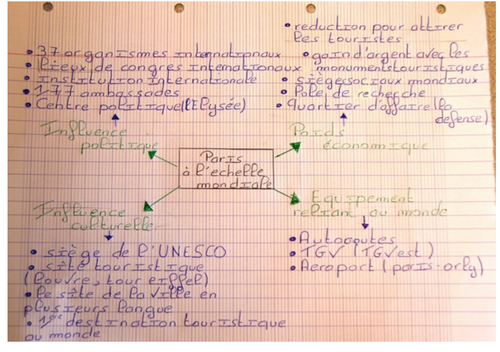 • 37 organismes internationaux
• lieux de congres internationaux
• Institution Internationale
• 177 ambassades
• Centre politique (l'Elysée)
Influence
politique
• reduction pour attirer
les touristes
• gain d'argent avec les
monuments touristiques
• siège sociaux mondiaux
• Pôle de recherche
• quartier d'affaire (la
defense)
Poids
économique
Paris
à l'echelle
mondiale
Influence
culturelle
• siège de l'UNESCO
• site touristique
(louvre, tour eiffel)
• le site de la ville en
plusieurs langue
• 1ère destination touristique
au monde
Equipement
reliant au monde
• Autoroutes
• TGV (TGVest)
• Aeroport (paris-orly)